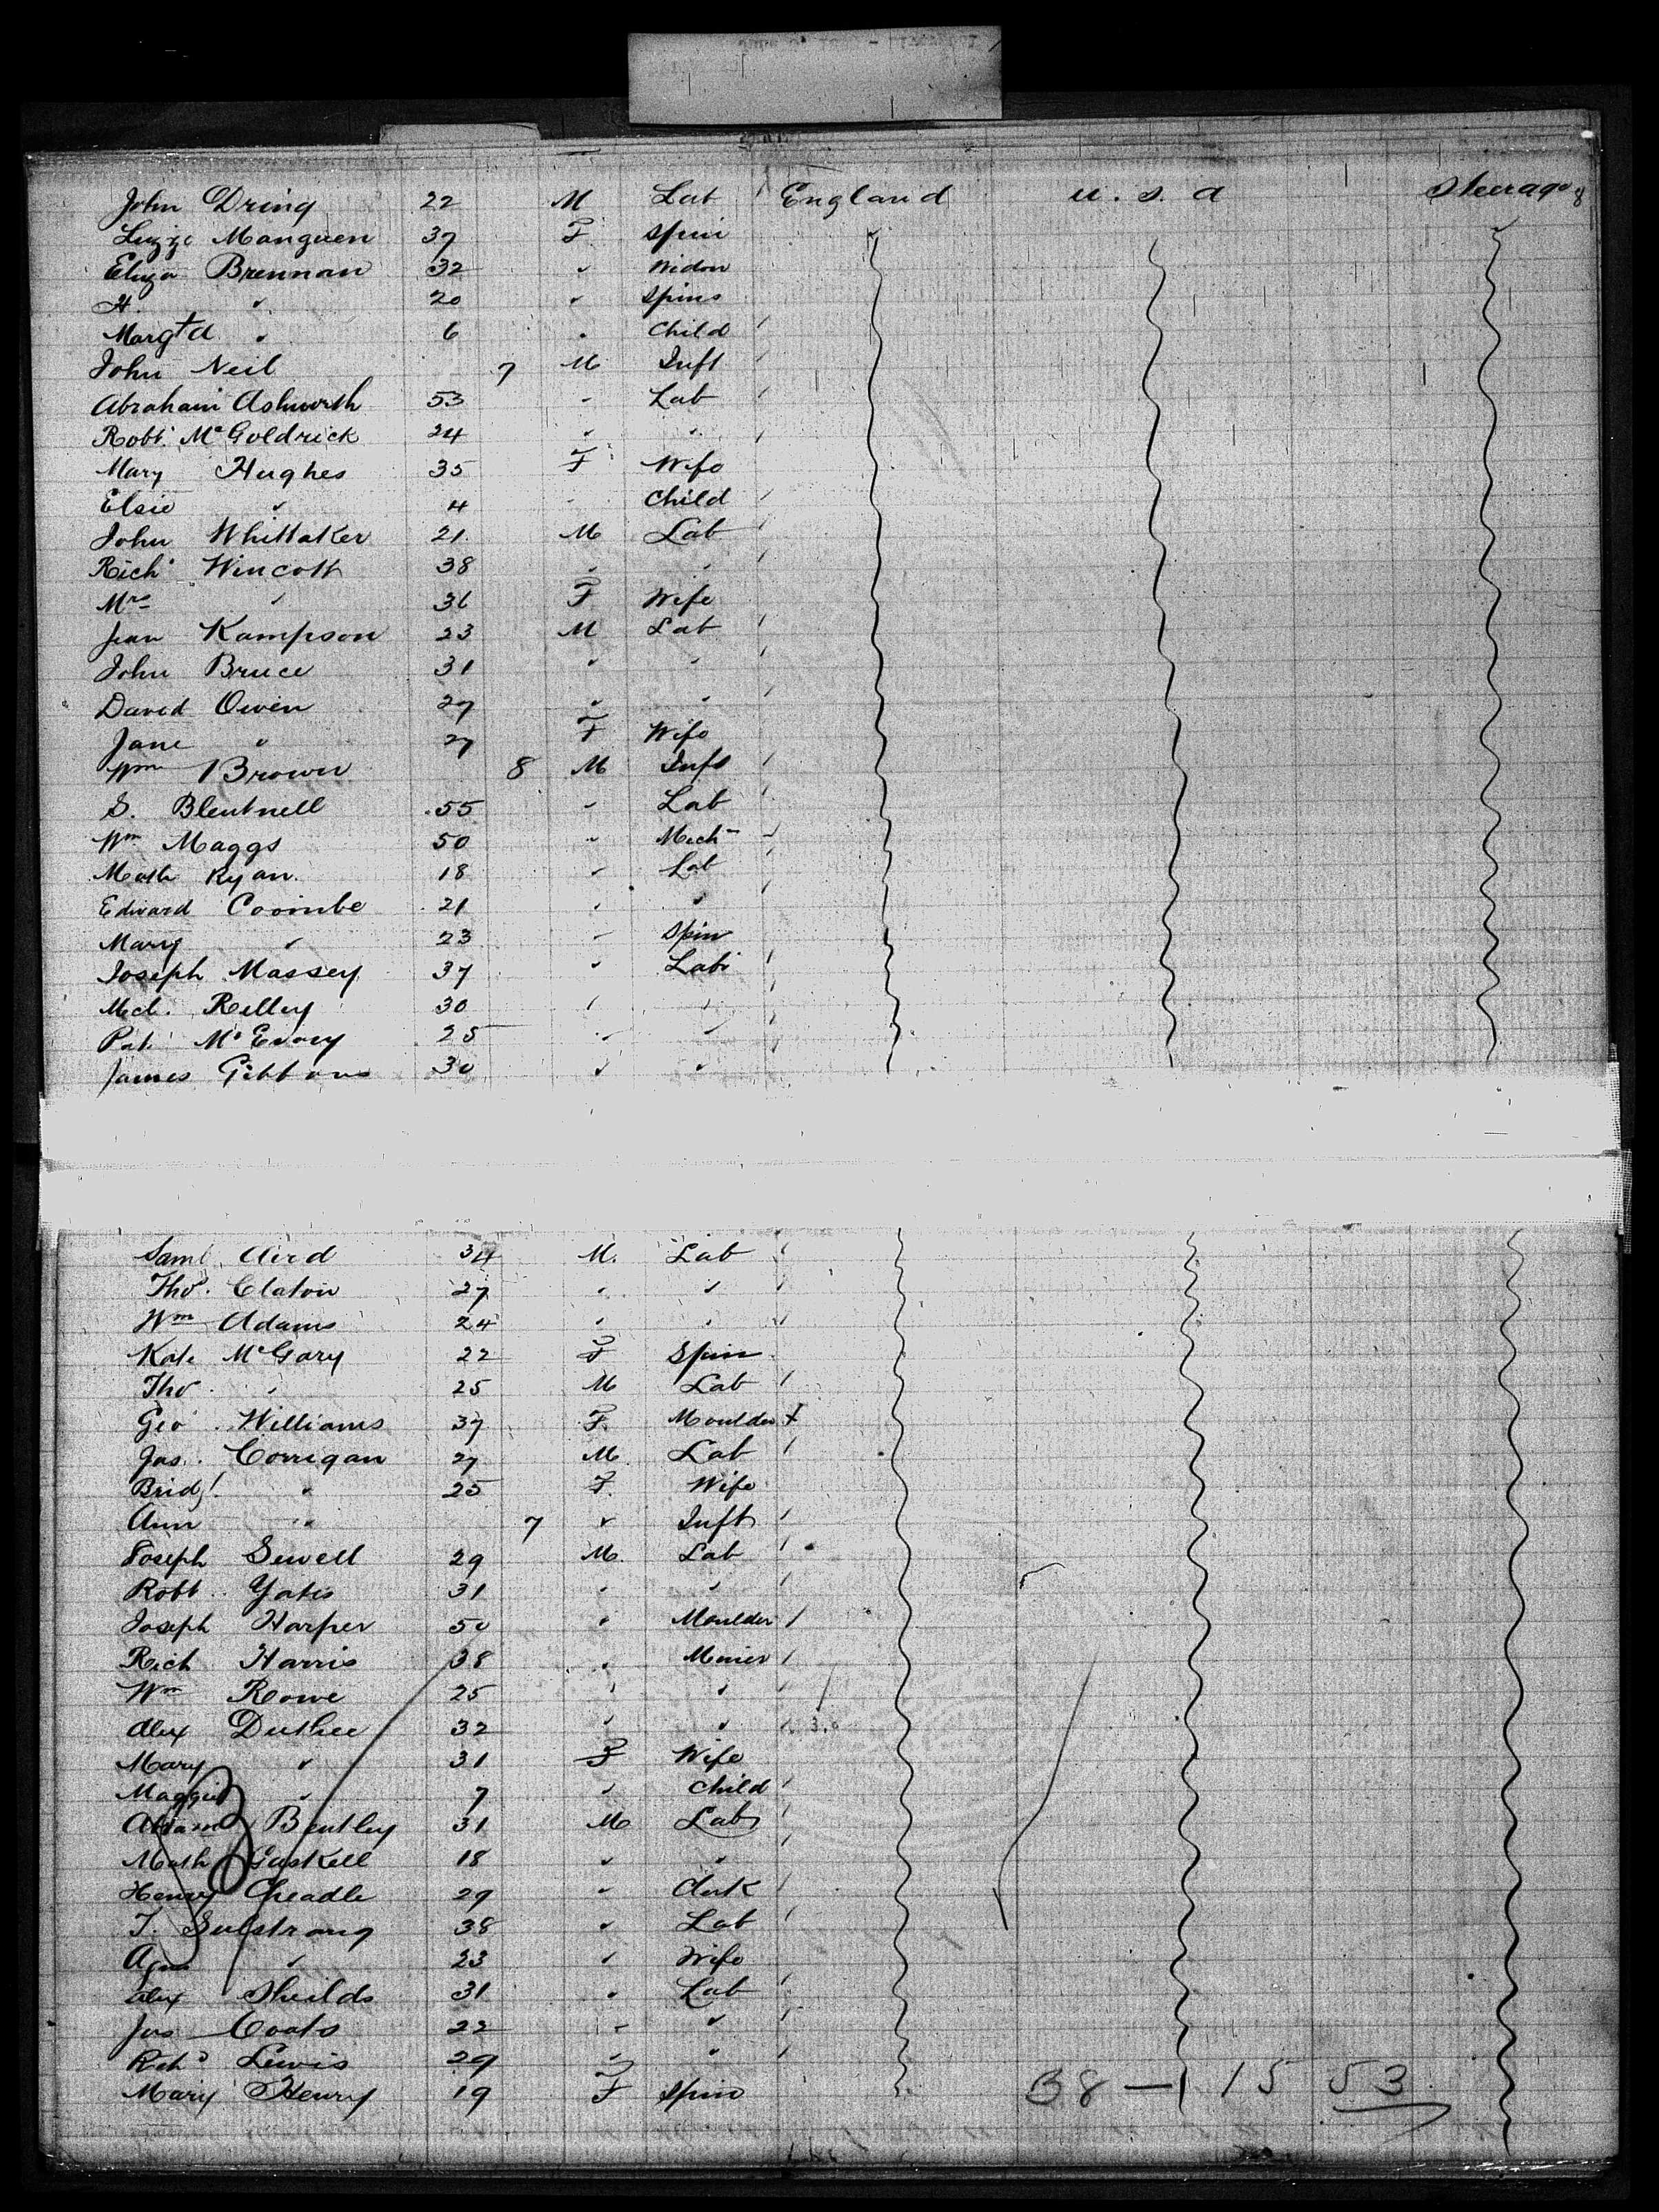 John Dring 22 M Lab England U.S.A Steerage
Lizze Manguen 37 F Spin
Eliza Brennan 32 " Widow
H. " 20 " Spins
Margtd " 6 " Child
John Neil 7 M Inft
Abraham Ashworth 53 " Lab
Robt. McGoldrick 24 " "
Mary Hughes 35 F Wife
Elsie " 4 " Child
John Whittaker 21 M Lab
Richd Wincott 38 " "
Mrs " 36 F Wife
Jean Kampson 23 M Lab
John Bruce 31 " "
David Owen 27 " "
Jane " 27 F Wife
Wm Brown 8 M Inft
S. Bleutnell 55 " Lab
Wm Maggs 50 " Mech
Math Ryan 18 " Lab
Edward Coombe 21 " "
Mary " 23 " Spin
Joseph Massey 37 " Lab
Mcl. Relley 30 " "
Pat. McEvory 25 " "
James Gibbons 30 " "
Saml. Aird 34 M. Lab
Thos. Claton 27 " "
Wm Adams 24 " "
Kate McGary 22 F Spin
Thos. " 25 M Lab
Geo. Williams 37 F Moulder
Jas. Corrigan 27 M Lab
Bridgt. " 25 F Wife
Ann " 7 " Inft
Joseph Sewell 29 M. Lab
Robt. Yates 31 " "
Joseph Harper 50 " Moulder
Rich Harris 38 " Miner
Wm Rowe 25 " "
Alex Duthee 32 " "
Mary " 31 F Wife
Maggie " 7 " Child
Adam Bentley 31 M Lab
Math Gaskell 18 " "
Henry Cheadle 29 " Clerk
T. Sulstrong 38 " Lab
" 23 " Wife
Alex Sheilds 31 " Lab
Jas Coats 22 " "
Richd Lewis 29 " "
Mary Henry 19 F Spin
38 — 1 15 53